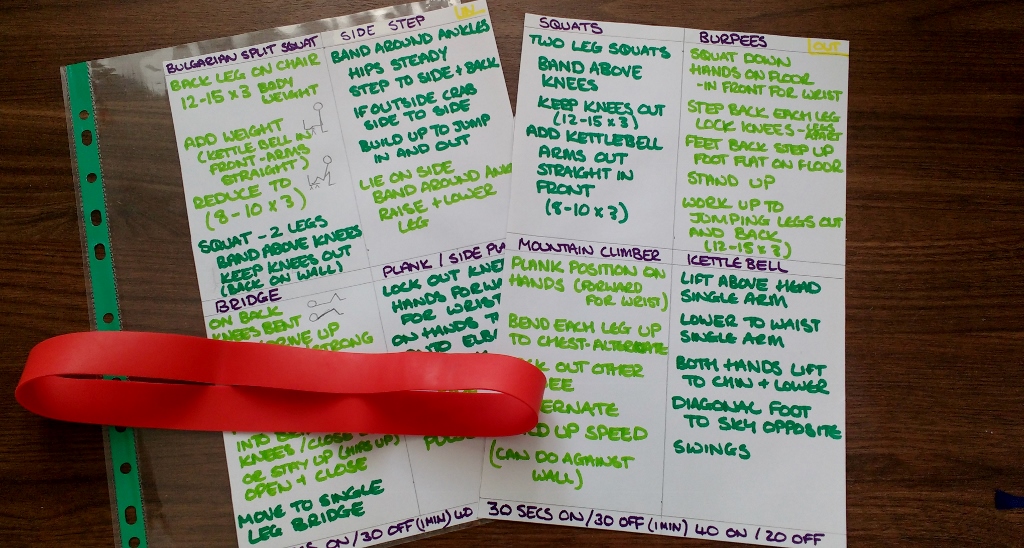 BULGARIAN SPLIT SQUAT
BACK LEG ON CHAIR
12-15 x 3 BODY
WEIGHT
ADD WEIGHT
(KETTLE BELL IN
FRONT-ARMS
STRAIGHT)
REDUCE TO
(8-10 x 3)
SQUAT - 2 LEGS
BAND ABOVE KNEES
KEEP KNEES OUT
(BACK ON WALL)
SIDE STEP
BAND AROUND ANKLES
HIPS STEADY
STEP TO SIDE + BACK
IF OUTSIDE CRAB
SIDE TO SIDE
BUILD UP TO JUMP
IN AND OUT
LIE ON SIDE
BAND AROUND
RAISE + LOWER
LEG
BRIDGE
ON BACK
KNEES BENT
DRIVE UP
STRONG
INTO
KNEES / CLOSE
OR STAY UP (HIPS UP)
OPEN + CLOSE
MOVE TO SINGLE
LEG BRIDGE
PLANK / SIDE
LOCK OUT
HANDS
FOR WRIST
ON HANDS
ON/30 OFF (1MIN) 40
SQUATS
TWO LEG SQUATS
BAND ABOVE
KNEES
KEEP KNEES OUT
(12-15 x 3)
ADD KETTLEBELL
ARMS OUT
STRAIGHT IN
FRONT
(8-10 x 3)
BURPEES
OUT
SQUAT DOWN
HANDS ON FLOOR
-IN FRONT FOR WRIST
STEP BACK EACH LEG
LOCK KNEES -
FEET BACK STEP UP
FOOT FLAT ON FLOOR
STAND UP
WORK UP TO
JUMPING LEGS OUT
AND BACK
(12-15 x 3)
MOUNTAIN CLIMBER
PLANK POSITION ON
HANDS (FORWARD
FOR WRIST)
BEND EACH LEG UP
TO CHEST-ALTERNATE
OUT OTHER
UP SPEED
(CAN DO AGAINST
WALL)
KETTLEBELL
LIFT ABOVE HEAD
SINGLE ARM
LOWER TO WAIST
SINGLE ARM
BOTH HANDS LIFT
TO CHIN + LOWER
DIAGONAL FOOT
TO SKY OPPOSITE
SWINGS
30 SECS ON/30 OFF (1MIN) 40 ON / 20 OFF